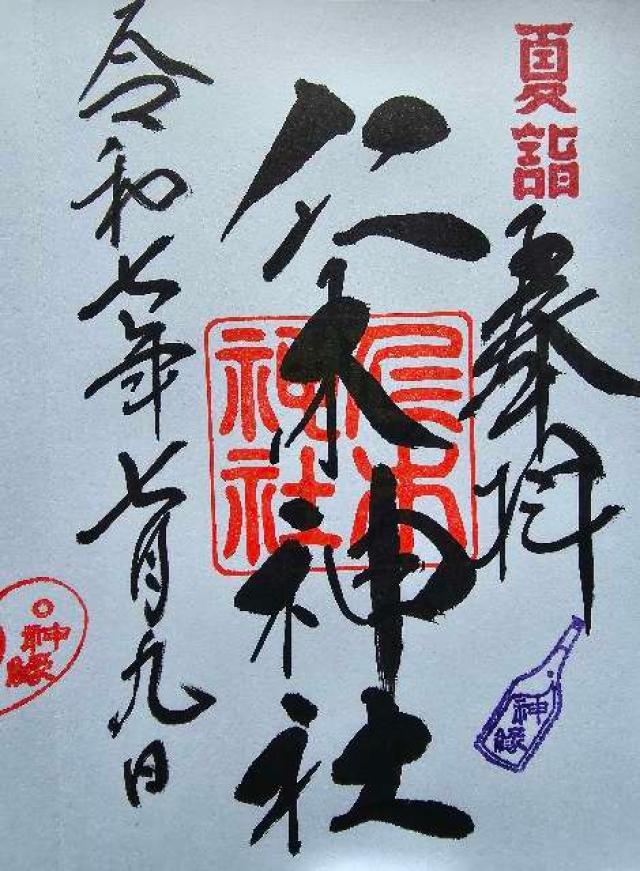 夏詣
奉拝
神縁
仁木神社
仁木
神社
令和七年七月九日
神縁